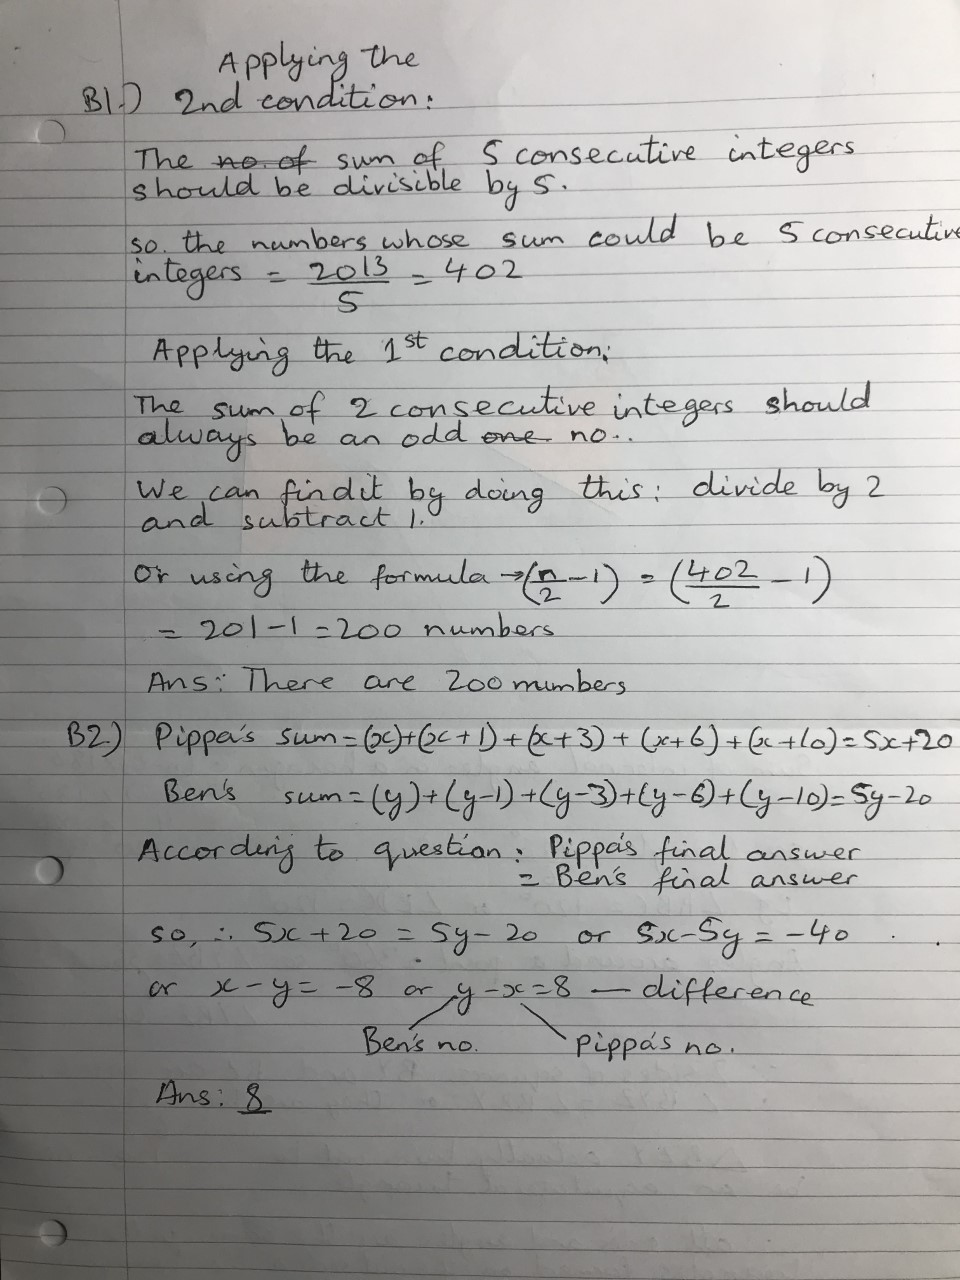 Applying the
B1.) 2nd condition:
The no. of sum of 5 consecutive integers
should be divisible by 5.
so. the numbers whose sum could be 5 consecutive
integers = 2013/5 = 402
Applying the 1st condition:
The sum of 2 consecutive integers should
always be an odd one no..
We can find it by doing this: divide by 2
and subtract 1.
Or using the formula → (n/2 - 1) = (402/2 - 1)
= 201 - 1 = 200 numbers
Ans: There are 200 numbers
B2.) Pippa's sum = (x)+(x+1)+(x+3)+(x+6)+(x+10) = 5x+20
Ben's sum = (y)+(y-1)+(y-3)+(y-6)+(y-10) = 5y-20
According to question: Pippa's final answer
= Ben's final answer
so, ∴ 5x+20 = 5y-20 or 5x-5y = -40
or x-y = -8 or y-x=8 — difference
Ben's no. Pippa's no.
Ans: 8